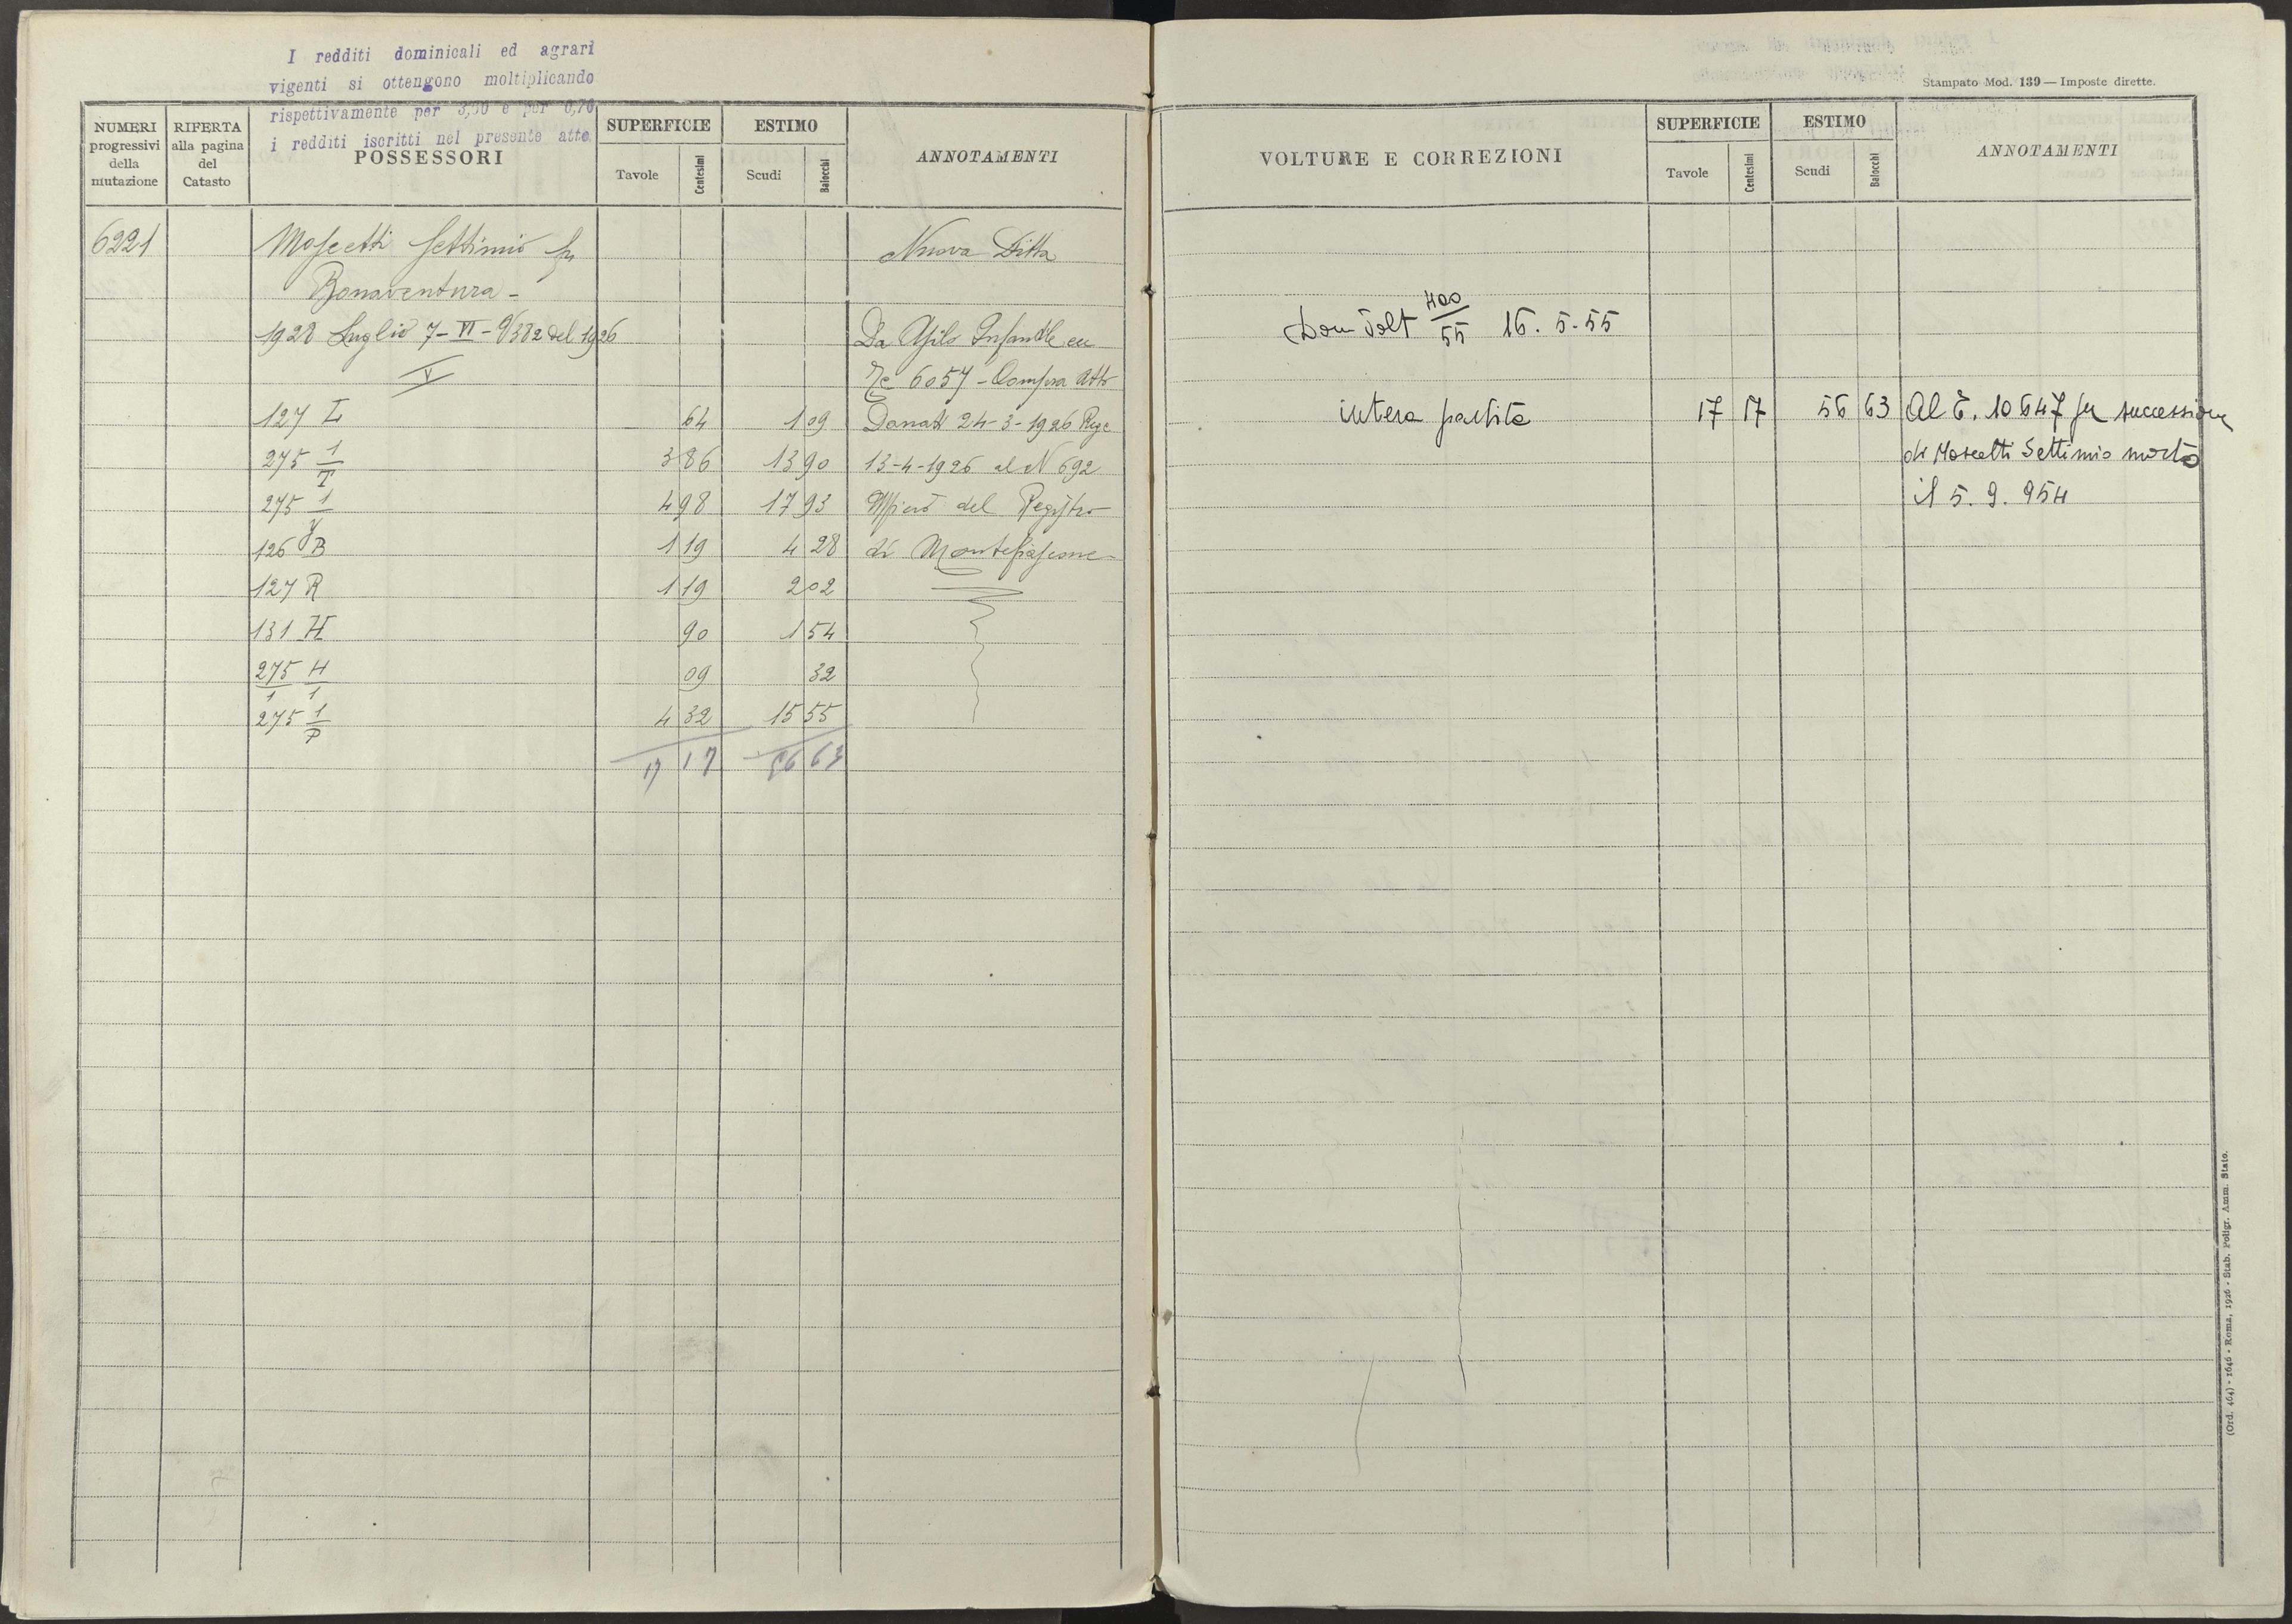 I redditi dominicali ed agrari
vigenti si ottengono moltiplicando
rispettivamente per 3,30 e per 0,70
i redditi iscritti nel presente atto.
NUMERI progressivi della mutazione
RIFERTA alla pagina del Catasto
POSSESSORI
SUPERFICIE
Tavole Centesimi
ESTIMO
Scudi Baiocchi
ANNOTAMENTI
6221 Moscetti Settimio fu Nuova Ditta
Bonaventura -
1928 Luglio 7 - VI - 382 del 1926 Da Asilo Infantile
V 6057 - Compra Atto
127 L 64 1 09 Donati 24-3-1926 Reg
275 1/T 3 86 13 90 13-4-1926 al N 692
275 1/V 4 98 17 93 Ufficio del Registro
126 B 1 19 4 28 di Montefiascone
127 R 1 19 2 02
131 H 90 1 54
275/1 H/1 09 32
275 1/P 4 32 15 55
17 17 56 63
Stampato Mod. 139 — Imposte dirette.
VOLTURE E CORREZIONI
SUPERFICIE
Tavole Centesimi
ESTIMO
Scudi Baiocchi
ANNOTAMENTI
Dom Volt 400/55 16. 5. 55
intera partita 17 17 56 63 Al E. 10647 per successione
di Moscetti Settimio morto
il 5. 9. 954
(Ord. 464) - 1646 - Roma, 1926 - Stab. Poligr. Amm. Stato.